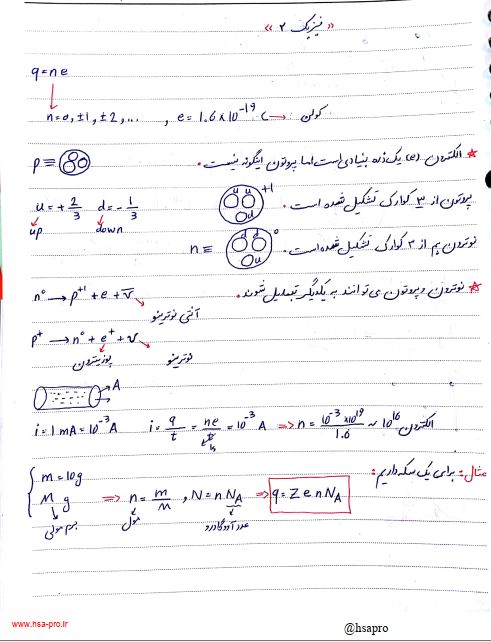 « فیزیک ۲ »
q = ne
n = 0, ±1, ±2, ... , e = 1.6×10⁻¹⁹ C → کولن
* الکترون (e) یک ذره بنیادی است اما پروتون اینگونه نیست.
P ≡
پروتون از ۳ کوارک تشکیل شده است. u u u +1
u = +2/3 d = -1/3
up down
نوترون هم از ۳ کوارک تشکیل شده است. n ≡ d d u 0
* نوترون و پروتون می توانند به یکدیگر تبدیل شوند.
n⁰ → p⁺¹ + e + ν̅
آنتی نوترینو
p⁺ → n⁰ + e⁺ + ν
پوزیترون نوترینو
A
i = 1 mA = 10⁻³ A i = q/t = ne/t = 10⁻³ A ⇒ n = 10⁻³×10¹⁹/1.6 ~ 10¹⁶ الکترون
1s
مثال: برای یک سکه داریم:
m = 10g
M g ⇒ n = m/M , N = nN_A ⇒ q = Z e n N_A
جرم مولی مول عدد آووگادرو
www.hsa-pro.ir
@hsapro